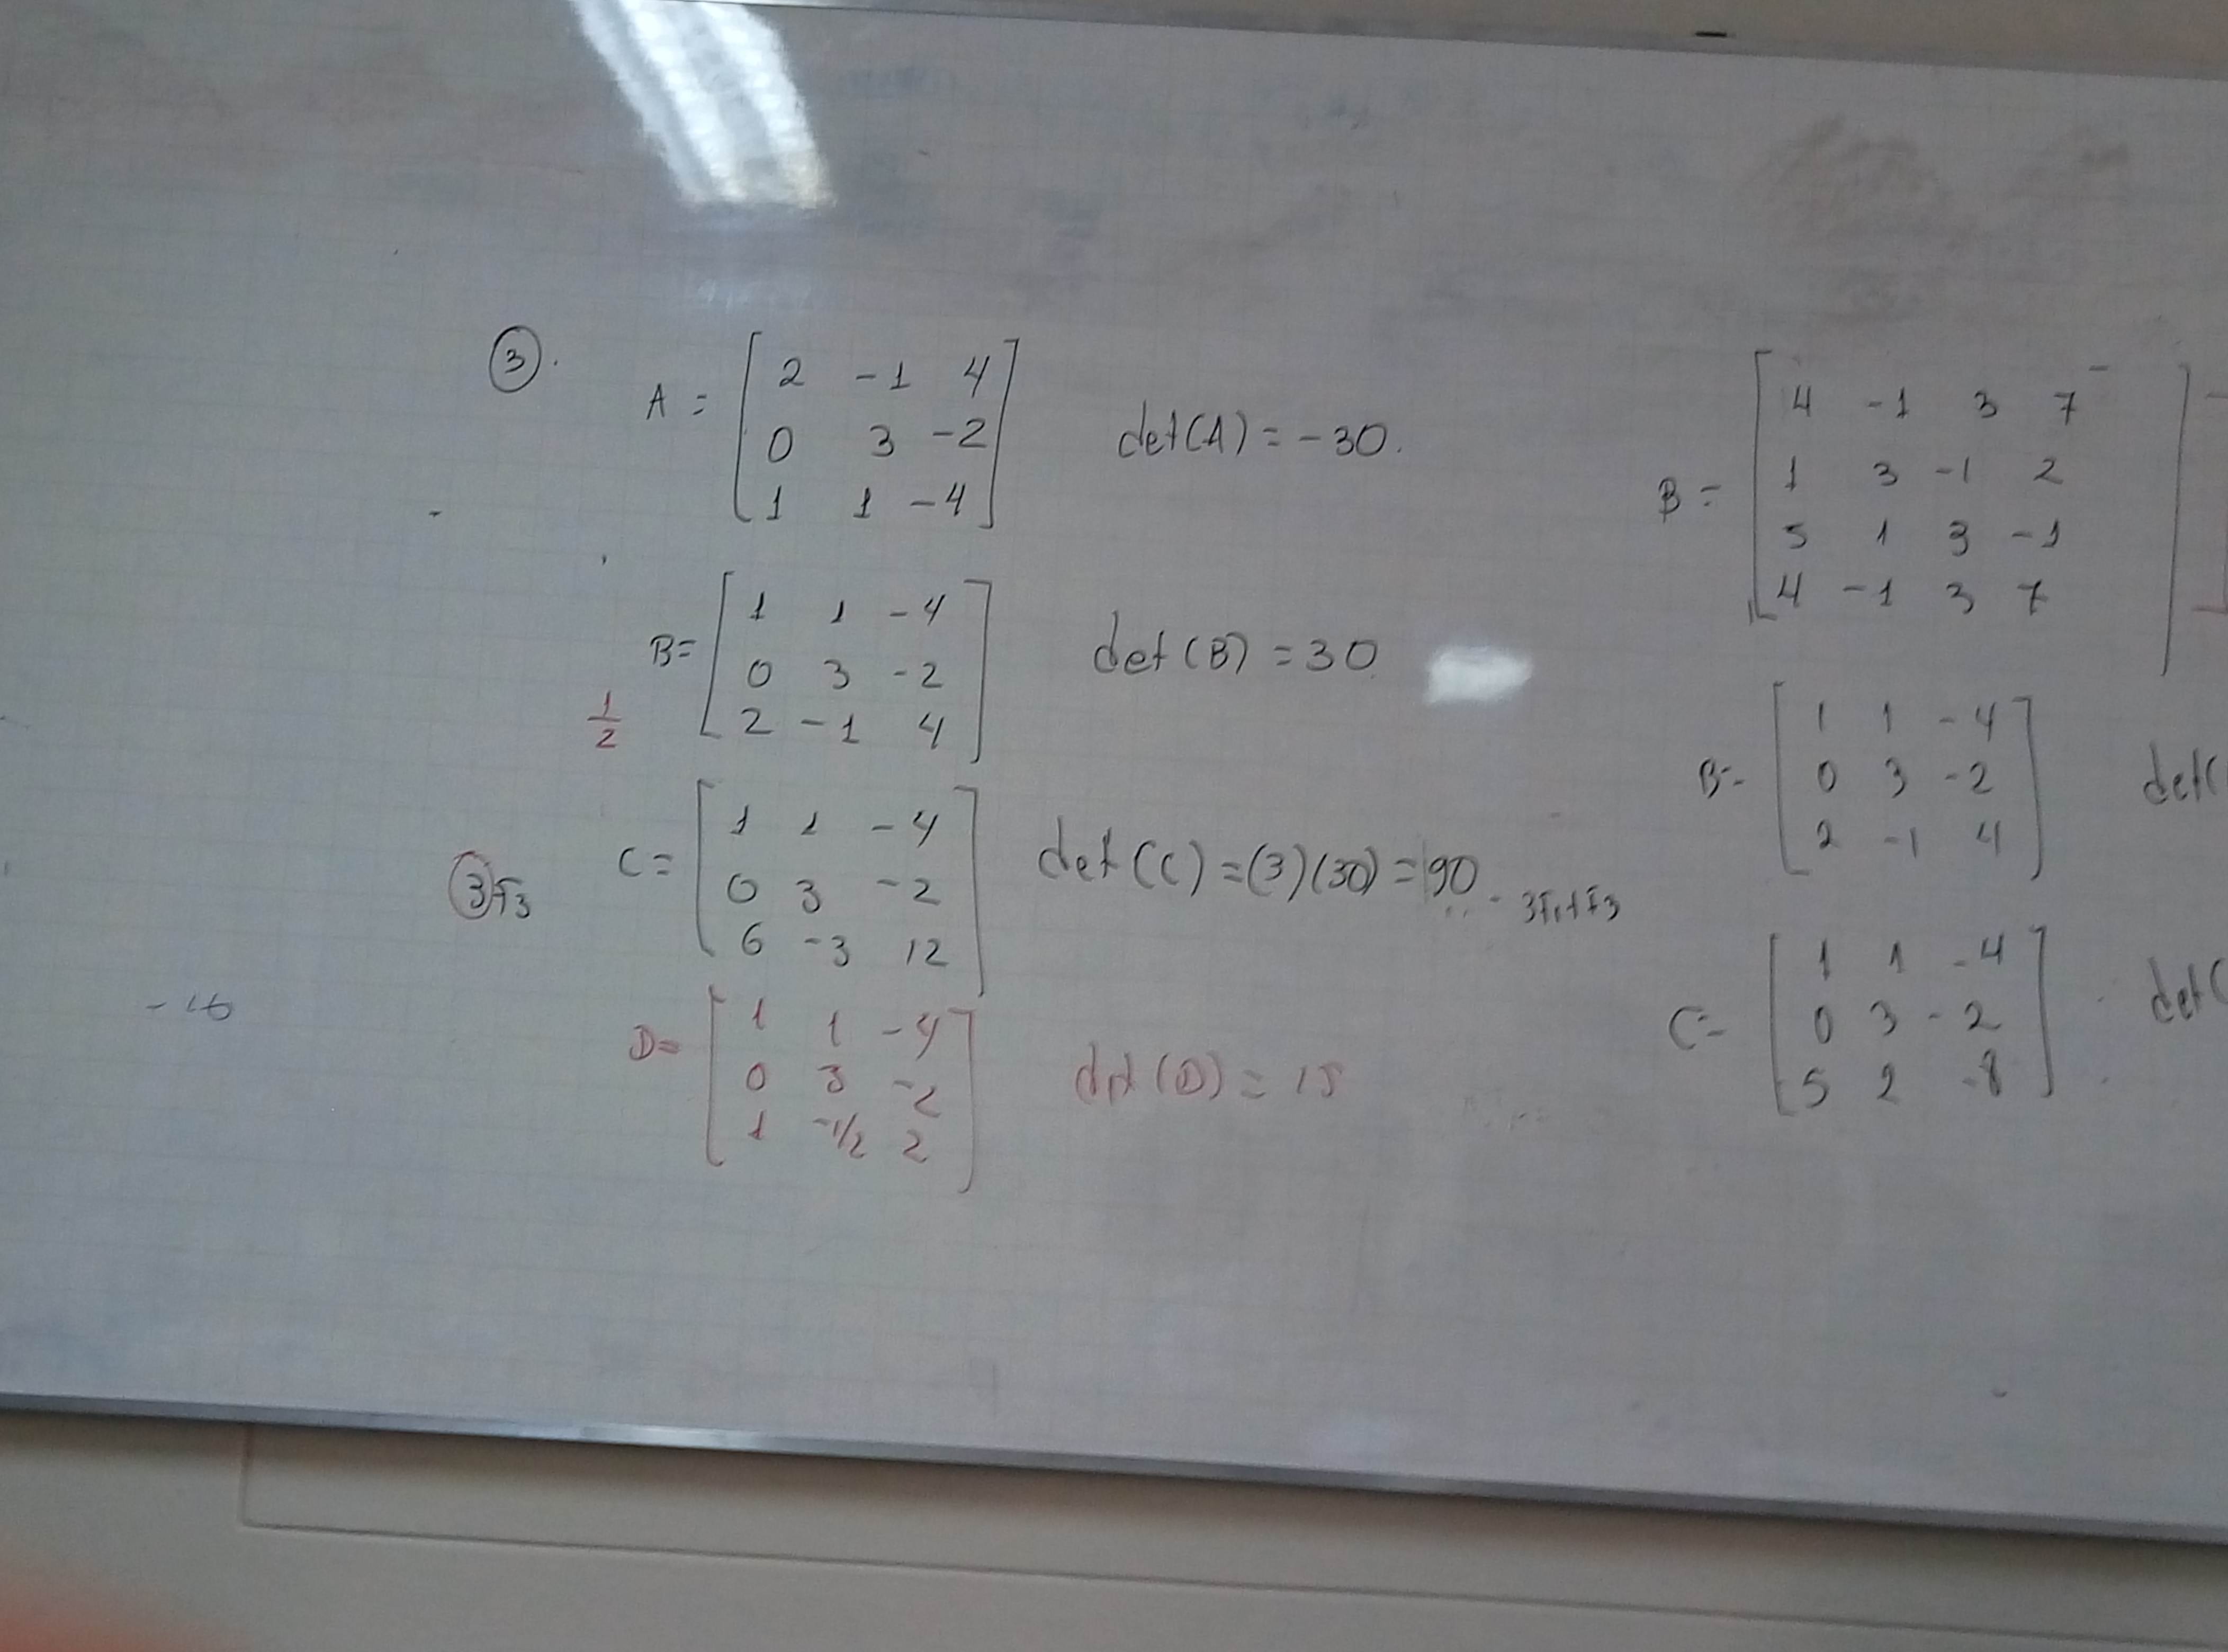 3.
A = [ 2 -1 4
0 3 -2
1 1 -4 ] det(A) = -30.
B = [ 1 1 -4
0 3 -2
2 -1 4 ] det(B) = 30
1/2
C = [ 1 1 -4
0 3 -2
6 -3 12 ] det(C) = (3)(30) = 90
3F3
D = [ 1 1 -4
0 3 -2
1 -1/2 2 ] det(D) = 15
B = [ 4 -1 3 7
1 3 -1 2
5 1 3 -1
4 -1 3 7 ]
B = [ 1 1 -4
0 3 -2
2 -1 4 ] det(
3F1+F3
C = [ 1 1 -4
0 3 -2
5 2 -8 ] det(